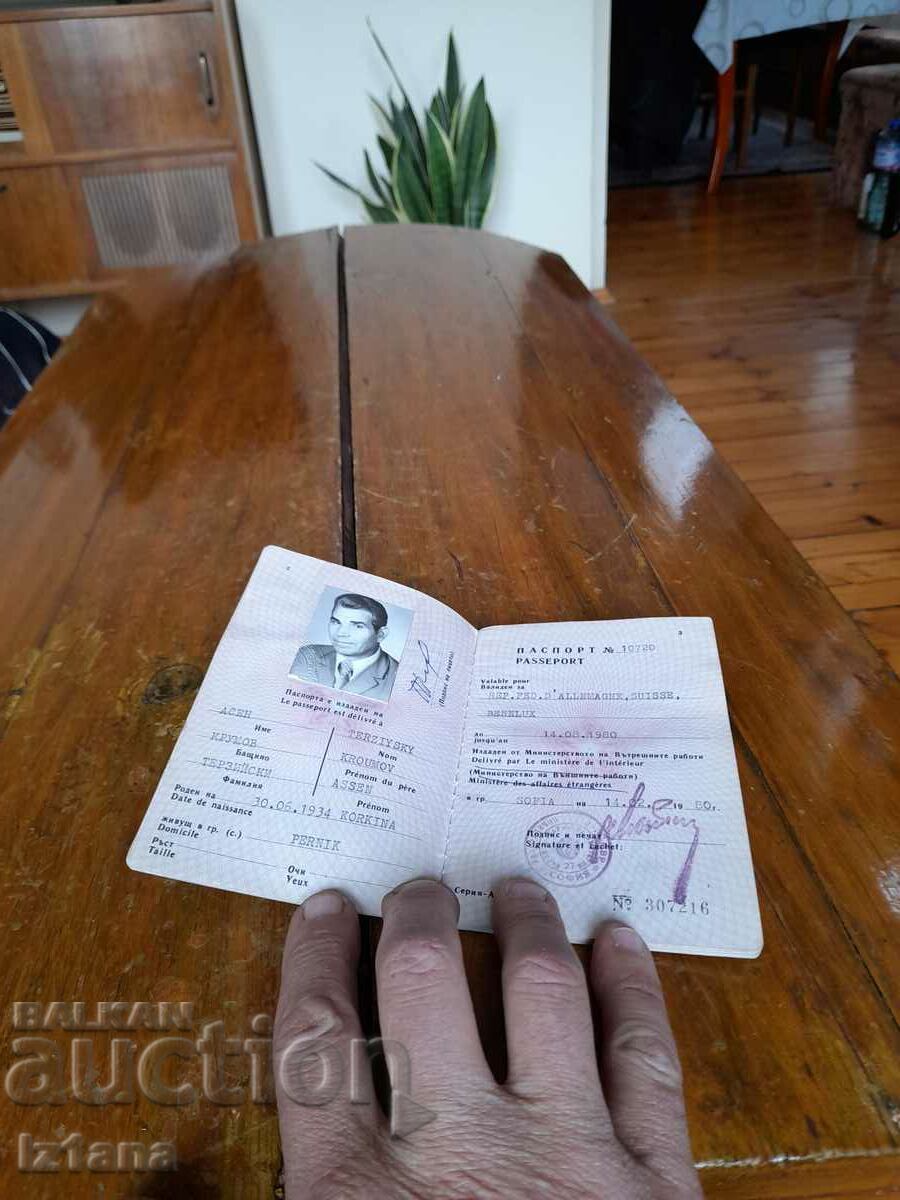 2
(Подпис на лицето)
Паспорта е издаден на
Le passeport est délivré à
АСЕН
TERZIYSKY
Име
Nom
КРУМОВ
KROUMOV
Бащино
Prénom du père
ТЕРЗИЙСКИ
ASSEN
Фамилия
Prénom
Роден на 30.06.1934 KORKINA
Date de naissance
живущ в гр. (с.)
Domicile
PERNIK
Ръст
Taille
Очи
Yeux
3
ПАСПОРТ № 10720
PASSEPORT
Valable pour
Валиден за
REP.FED.D'ALLEMAGNE,SUISSE,
BENELUX
до
jusqu'au
14.08.1980
Издаден от Министерството на Вътрешните работи
Délivré par Le ministère de l'intérieur
(Министерство на Външните работи)
Ministère des affaires étrangères
в гр. SOFIA на 14.02. 1980г.
Подпис и печат
Signature et cachet:
СОФИЯ
Серия-А
№ 307216
BALKAN
auction
iz1ana